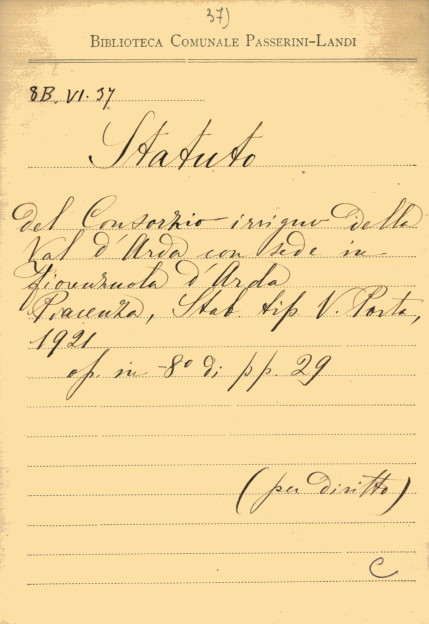 37)
BIBLIOTECA COMUNALE PASSERINI-LANDI
8B. VI. 37
Statuto
del Consorzio irriguo della
Val d'Arda con sede in
Fiorenzuola d'Arda
Piacenza, Stab. tip V. Porta,
1921
op. in -8° di pp. 29
(per diritto)
C